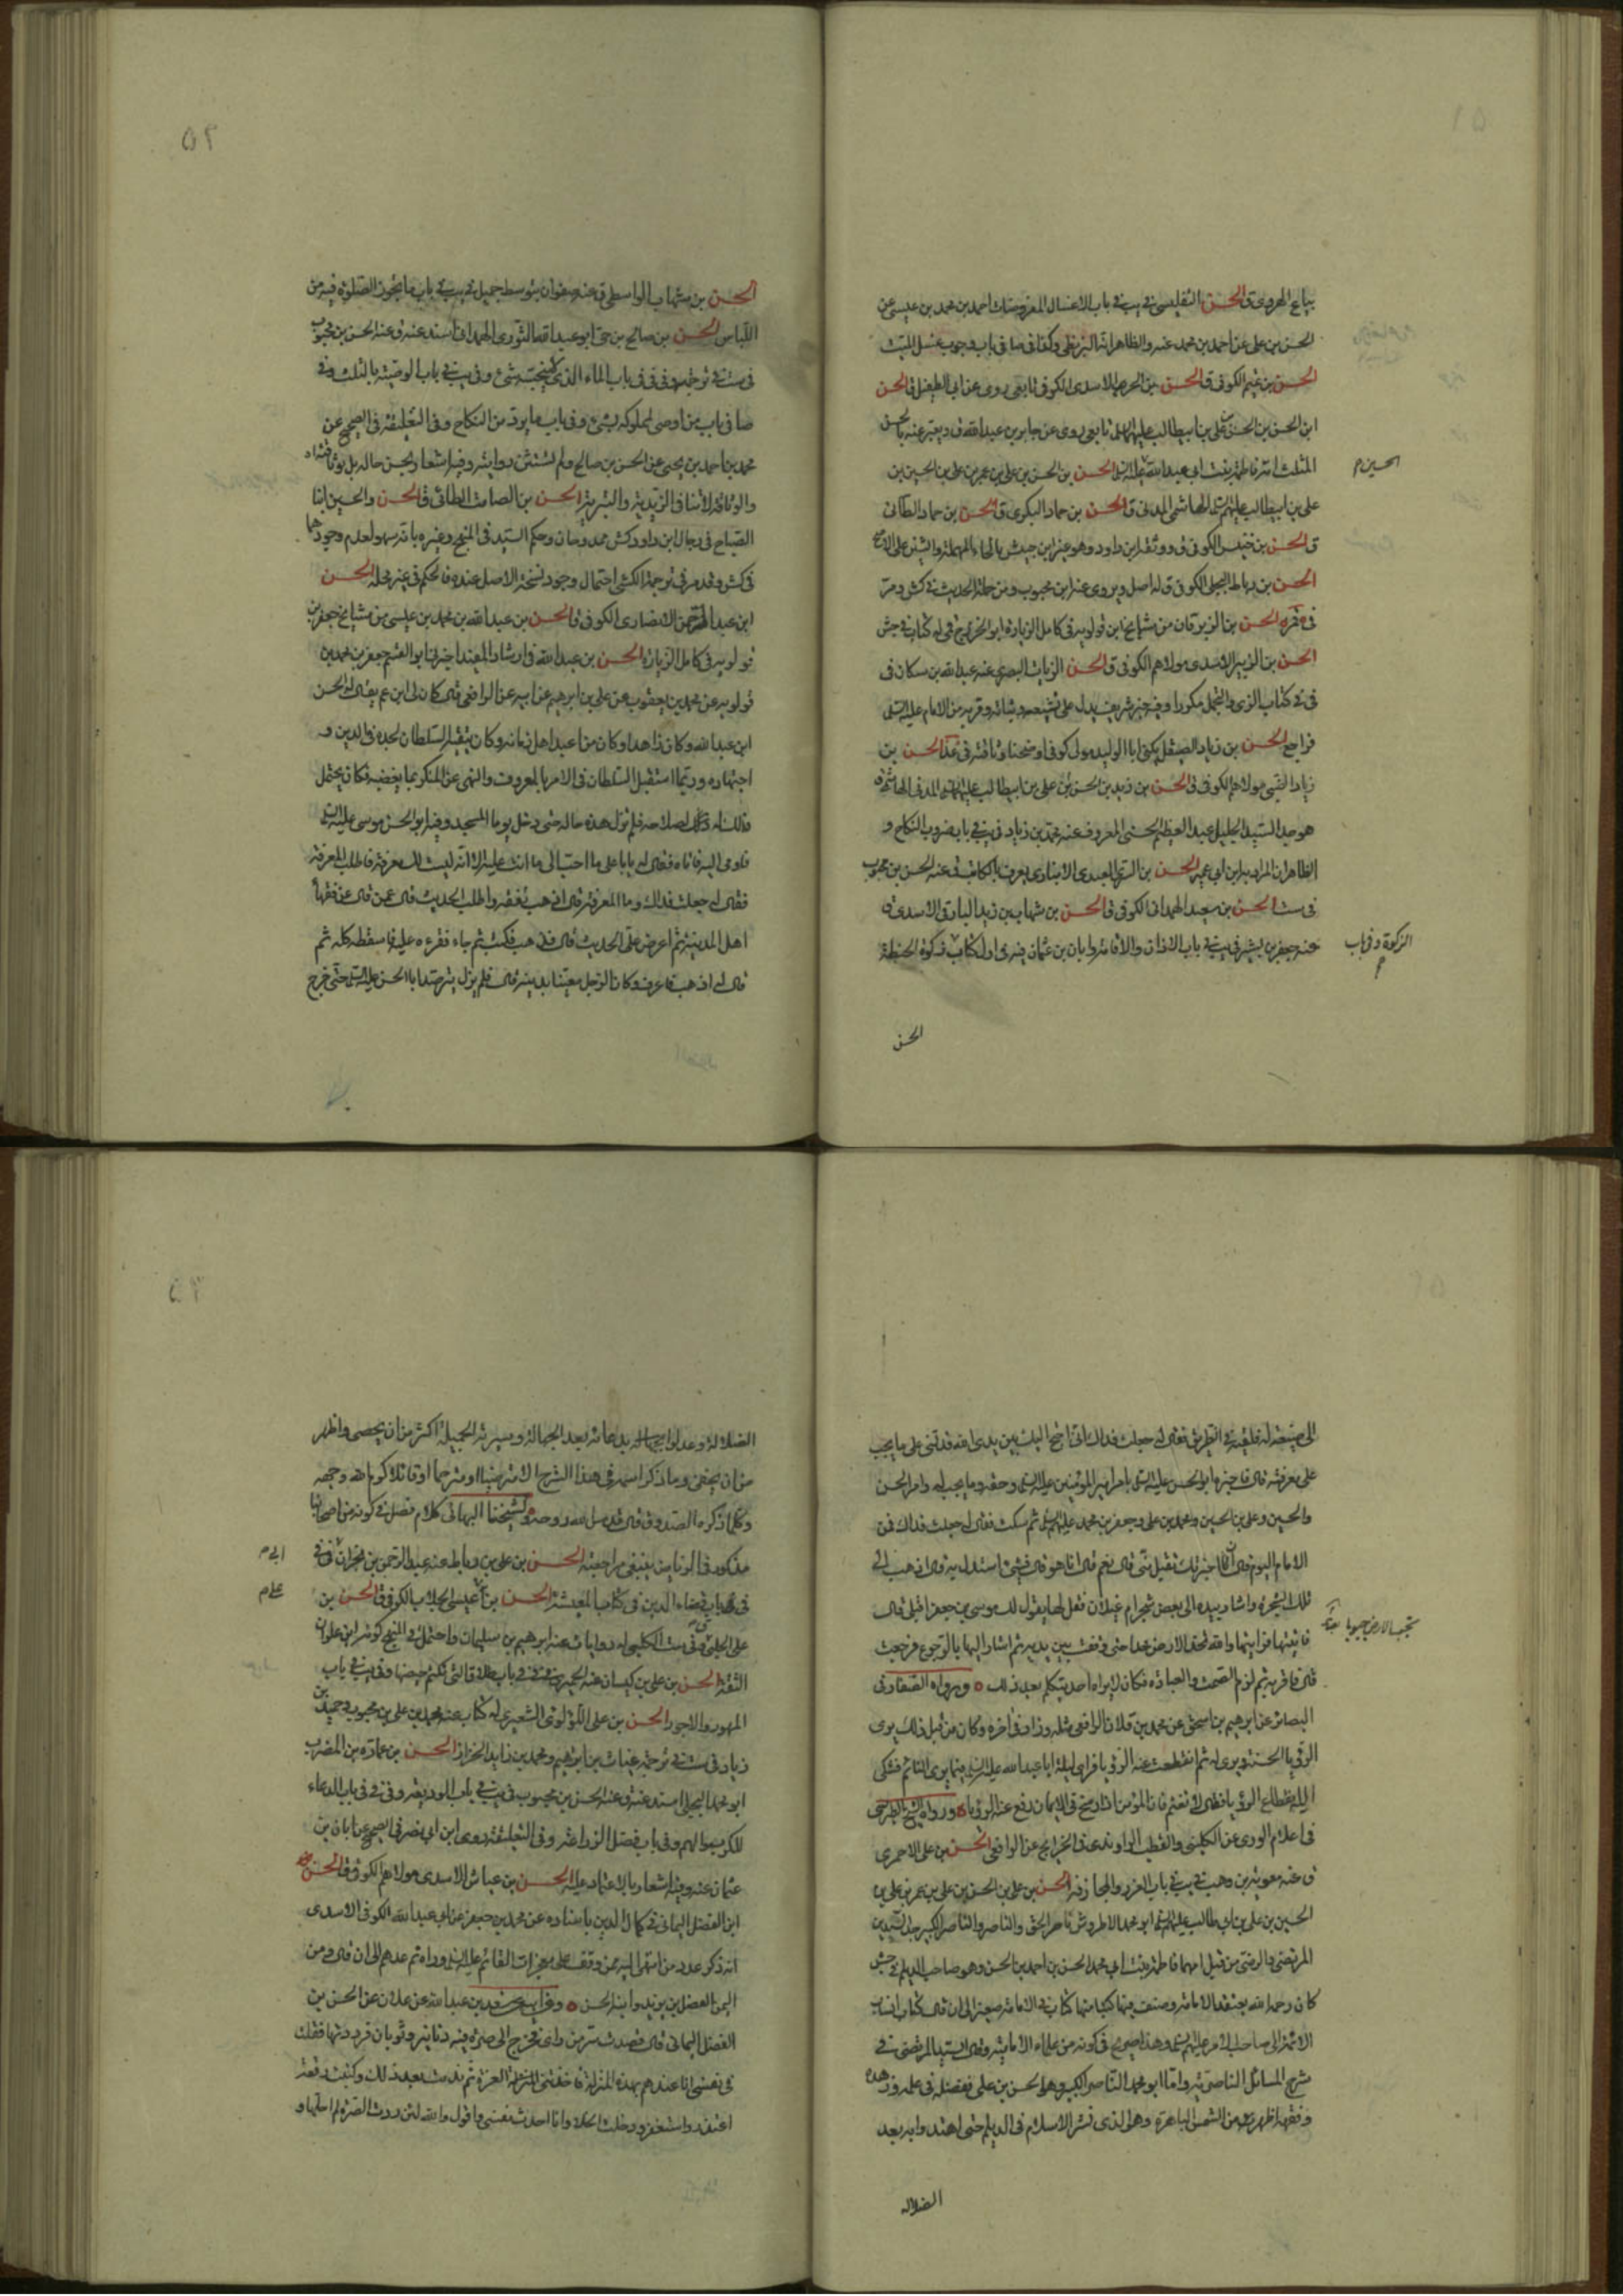 بياع الهروى ق الحسن التفليسى فى يب فى باب الاغسال المفروضات احمد بن محمد بن عيسى عن
الحسن بن على عن احمد بن محمد عنه والظاهر انه البزنطى وكذا فى صا فى باب وجوب غسل الميت
الحسن بن تميم الكوفى ق الحسن بن الحر الاسدى الكوفى تابعى روى عن ابى الطفيل ق الحسن
ابن الحسن بن الحسن بن على بن ابيطالب عليهم السلام تابعى روى عن جابر بن عبد الله ق ويعبر عنه بالحسن
المثلث امه فاطمة بنت ابى عبد الله عليه السلام الحسن بن الحسن بن على بن عمر بن على بن الحسين بن
الحسين م
على بن ابيطالب عليهم السلام الهاشمى المدنى ق الحسن بن حماد البكرى ق الحسن بن حماد الطائى
ق الحسن بن خنيس الكوفى ق ووثقه ابن داود وهو غير ابن حبيش بالحاء المهملة والشين على الاصح
الحسن بن رباط البجلى الكوفى ق له اصل ويروى عنه ابن محبوب ومن جملة الحديث فى كش ومر
الحسن بن الزبرقان من مشايخ ابن قولويه فى كامل الزيارة ابو الخزرج قمى له كتاب فى جش
الحسن بن الزبير الاسدى مولاهم الكوفى ق الحسن الزيات البصرى عنه عبد الله بن مسكان فى
فى فى كتاب الزى والتجمل مكررا وفيه خبر شريف يدل على تشيعه وقربه من الامام عليه السلام
فراجع الحسن بن زياد الصيقل يكنى ابا الوليد مولى كوفى اوضحنا وثاقته فى الحسن بن
زياد الضبى مولاهم الكوفى ق الحسن بن زيد بن الحسن بن على بن ابيطالب عليهم السلام المدنى الهاشمى
هو جد السيد الجليل عبد العظيم الحسنى المعروف عنه محمد بن زياد فى يب فى باب ضروب النكاح و
الظاهر ان المراد به ابن ابى عمير الحسن بن السرى العبدى الانبارى يعرف بالكاتب ق عنه الحسن بن محبوب
فى ست الحسن بن سعيد الهمدانى الكوفى ق الحسن بن شهاب بن زيد البارقى الاسدى ق
عنه جعفر بن بشير فى يب فى باب الاذان والاقامة وابان بن عثمان فيه فى اول كتاب زكوة الحنطة
الزكوة وفى باب م
الحسن
٥٢
الحسن بن شهاب الواسطى ق عنه صفوان بتوسط جميل فى يب فى باب ما يجوز الصلوة فيه من
اللباس الحسن بن صالح بن حى ابو عبد الله الثورى الهمدانى اسند عنه ق وعنه الحسن بن محبوب
فى ست فى ترجمته وفى فى فى باب الماء الذى لا ينجسه شئ وفى يب فى باب الوصية بالثلث وفى
صا فى باب من اوصى لمملوكه بشئ وفى باب ما يرد من النكاح وفى التعليقة فى الصحيح عن
محمد بن احمد بن يحيى عن الحسن بن صالح ولم تستثن روايته وفيه اشعار بحسن حاله بل بوثاقته اه
والوثاقة لا تنافى الزيدية والبترية الحسن بن الصامت الطائى ق الحسن والحسين ابنا
الصباح فى رجال ابن داود كش ممدوحان وحكم السيد فى المنهج وغيره بانه سهو لعدم وجودهما
فى كش وقد مر فى ترجمة الكشى احتمال وجود نسخة الاصل عنده فالحكم فى غير محله الحسن
ابن عبد الرحمن الانصارى الكوفى ق الحسن بن عبد الله بن محمد بن عيسى من مشايخ جعفر بن
قولويه فى كامل الزيارة الحسن بن عبد الله فى ارشاد المفيد اخبرنى ابو القسم جعفر بن محمد بن
قولويه عن محمد بن يعقوب عن على بن ابرهيم عن ابيه عن الرافعى قال كان لى ابن عم يقال له الحسن
ابن عبد الله وكان زاهدا وكان من اعبد اهل زمانه وكان يتقيه السلطان لجده فى الدين و
اجتهاده وربما استقبل السلطان فى الامر بالمعروف والنهى عن المنكر بما يغضبه فكان يحتمل
ذلك له لصلاحه فلم تزل هذه حاله حتى دخل يوما المسجد وفيه ابو الحسن موسى عليه السلام
فاومى اليه فاتاه فقال له يابا على ما احب الى ما انت عليه الا انه ليست لك معرفة فاطلب المعرفة
فقال له جعلت فداك وما المعرفة قال اذهب تفقه واطلب الحديث قال عمن قال عن فقهاء
اهل المدينة ثم اعرض على الحديث قال فذهب فكتب ثم جاء فقرءه عليه فاسقطه كله ثم
قال له اذهب فاعرف وكان الرجل معنيا بدينه قال فلم يزل يترصد ابا الحسن عليه السلام حتى خرج
الى ضيعة له فلقيه فى الطريق فقال له جعلت فداك انى احتج اليك بين يدى الله فدلنى على ما يجب
على معرفته قال فاخبره ابو الحسن عليه السلام بامر امير المؤمنين عليه السلام وحقه وما يجب له وامر الحسن
والحسين وعلى بن الحسين ومحمد بن على وجعفر بن محمد عليهم السلام ثم سكت فقال له جعلت فداك فمن
الامام اليوم قال ان اخبرتك تقبل منى قال نعم قال انا هو قال فشئ استدل به قال اذهب الى
تلك الشجرة واشار بيده الى بعض شجر ام غيلان فقل لها يقول لك موسى بن جعفر اقبلى قال
فاتيتها فرايتها والله تخد الارض خدا حتى وقفت بين يديه ثم اشار اليها بالرجوع فرجعت
قال فاقر به ثم لزم الصمت والعبادة فكان لا يراه احد يتكلم بعد ذلك ٥ ورواه الصفار فى
البصائر عن ابرهيم بن اسحق عن محمد بن فلان الرافعى مثله وزاد فى اخره وكان من قبل ذلك يرى
الرؤيا الحسنة ويرى له ثم انقطعت عنه الرؤيا فراى ليلة ابا عبد الله عليه السلام فيما يرى النائم فشكى
اليه انقطاع الرؤيا فقال لا تغتم فان المؤمن اذا رسخ فى الايمان رفع عنه الرؤيا ٥ ورواه الشيخ الطبرسى
فى اعلام الورى عن الكلينى والقطب الراوندى فى الخرايج عن الرافعى الحسن بن على الاحمرى
ق عنه معوية بن وهب فى يب فى باب الغرر والمجازفة الحسن بن على بن الحسن بن على بن عمر بن على بن
الحسين بن على بن ابى طالب عليهم السلام ابو محمد الاطروش ناصر الحق والناصر والناصر الكبير جد السيدين
المرتضى والرضى من قبل امهما فاطمة بنت ابى محمد الحسن بن احمد بن الحسن وهو صاحب الديلم فى جش
كان رحمه الله يعتقد الامامة وصنف فيها كتبا منها كتاب فى الامامة صغير الى ان قال كتاب انساب
الائمة الى صاحب الامر عليهم السلام وهذا صريح فى كونه من علماء الامامية وقال السيد المرتضى فى
شرح المسائل الناصرية واما ابو محمد الناصر الكبير وهو الحسن بن على ففضله فى علمه وزهده
وفقهه اظهر من الشمس الباهرة وهو الذى نشر الاسلام فى الديلم حتى اهتدوا به بعد
الضلالة
الضلالة وعدلوا بدعائه بعد الجهالة وسيرته الجميلة اكثر من ان يحصى واظهر
من ان يخفى وما ذكر اسمه فى هذا الشرح الا مترضيا او مترحما او قائلا كرم الله وجهه
وكلما ذكره الصدوق قال قدس الله روحه ولشيخنا البهائى كلام فصل فى كونه من اصحابنا
مذكور فى الرياض ينبغى مراجعته الحسن بن على بن رباط عنه عبد الرحمن بن ابى نجران
ابى م
فى باب قضاء الدين فى كتاب المعيشة الحسن بن على بن عيسى الجلاب الكوفى ق الحسن بن
على م
على الكلبى له روايات عنه ابرهيم بن سليمان واحتمل فى المنهج كونه ابن علوان
الثقة الحسن بن على بن كيسان عنه الحميرى
المهور والاجور الحسن بن على اللؤلؤى الشعيرى له كتاب عنه محمد بن على بن محبوب وحميد بن
زياد فى ست فى ترجمة غياث بن ابرهيم ومحمد بن زايد الخزاز الحسن بن عمارة بن المضرب
ابو محمد البجلى اسند عنه ق وعنه الحسن بن محبوب فى يب فى باب الوديعة وفى فى فى باب الدعاء
للكرب والهم وفى باب فضل الزراعة وفى التعليقة روى ابن ابى نصر فى الصحيح عن ابان بن
عثمان عنه وفيه اشعار بالاعتماد عليه الحسن بن عياش الاسدى مولاهم الكوفى ق الحسن
ابن الفضل اليمانى فى كمال الدين باسناده عن محمد بن جعفر عن ابى عبد الله الكوفى الاسدى
انه ذكر عدد من انتهى اليه ممن وقف على معجزات القائم عليه السلام وراه ثم عدهم الى ان قال ومن
اليمن الفضل بن يزيد وابنه الحسن ٥ وفيه عن سعد بن عبد الله عن علان عن الحسن بن
الفضل اليمانى قال قصدت سر من راى فخرج الى صرة فيه دنانير وثوبان فرددتها فقلت
فى نفسى انا عندهم بهذه المنزلة فاخذتنى العزة ثم ندمت بعد ذلك وكتبت رقعة
اعتذر واستغفر ودخلت الخلا وانا احدث نفسى واقول والله لئن ردت الصرة لم احلها و